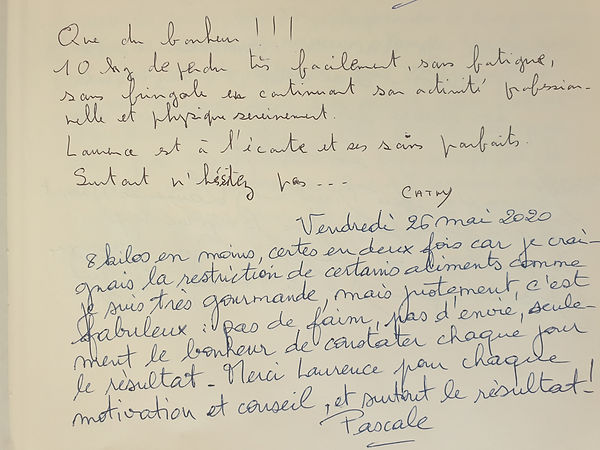 Que du bonheur !!!
10 kg de perdu très facilement, sans fatigue,
sans fringale en continuant son activité profession-
nelle et physique sereinement.
Laurence est à l'écoute et ses soins parfaits.
Surtout n'hésitez pas ---
CATHY
Vendredi 26 mai 2020
8 kilos en moins, certes en deux fois car je crai-
gnais la restriction de certains aliments comme
je suis très gourmande, mais justement, c'est
fabuleux : pas de faim, pas d'envie, seule-
ment le bonheur de constater chaque jour
le résultat - Merci Laurence pour chaque
motivation et conseil, et surtout le résultat !
Pascale